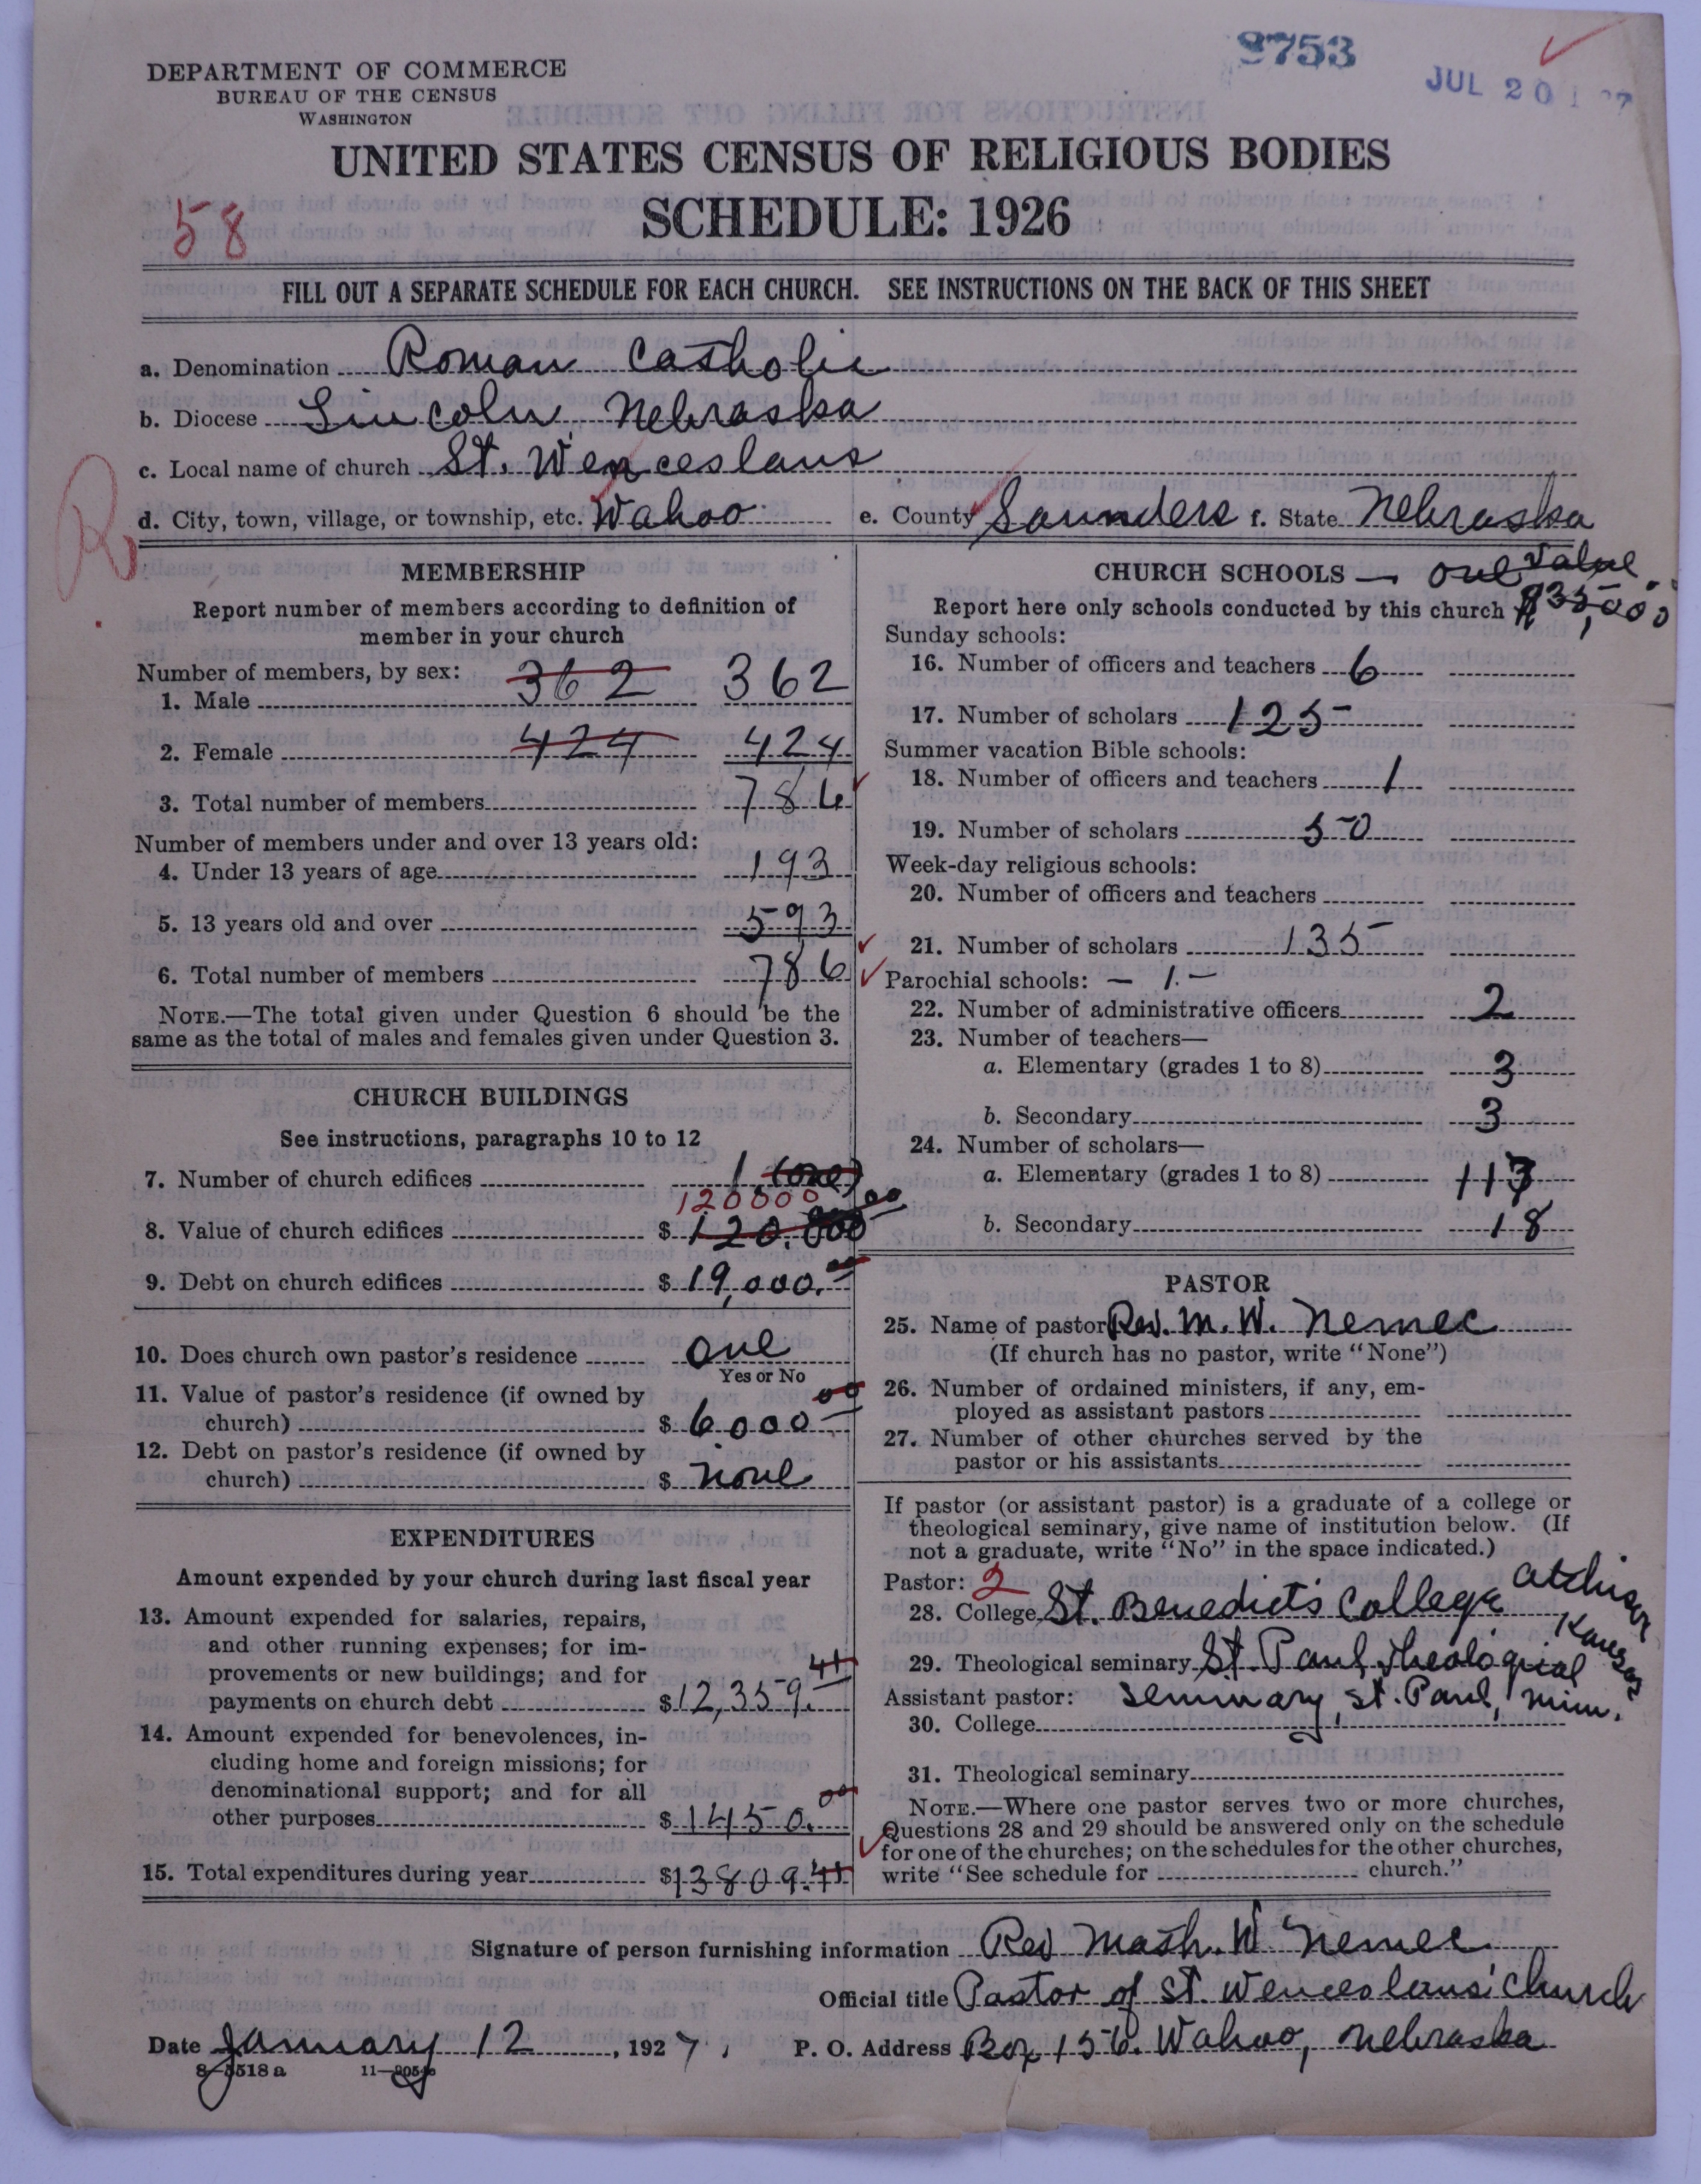 8753
JUL 20 1927
DEPARTMENT OF COMMERCE
BUREAU OF THE CENSUS
WASHINGTON
UNITED STATES CENSUS OF RELIGIOUS BODIES
SCHEDULE: 1926
58
FILL OUT A SEPARATE SCHEDULE FOR EACH CHURCH. SEE INSTRUCTIONS ON THE BACK OF THIS SHEET
a. Denomination Roman Catholic
b. Diocese Lincoln, Nebraska
c. Local name of church St. Wenceslaus
R
d. City, town, village, or township, etc. Wahoo e. County Saunders f. State Nebraska
MEMBERSHIP
Report number of members according to definition of
member in your church
Number of members, by sex:
1. Male 362 362
2. Female 424 424
3. Total number of members 786
Number of members under and over 13 years old:
4. Under 13 years of age 193
5. 13 years old and over 593
6. Total number of members 786
NOTE.—The total given under Question 6 should be the
same as the total of males and females given under Question 3.
CHURCH BUILDINGS
See instructions, paragraphs 10 to 12
7. Number of church edifices 1 (one)
120000
8. Value of church edifices $ 120.000 00
9. Debt on church edifices $ 19,000.00
10. Does church own pastor's residence one
Yes or No
11. Value of pastor's residence (if owned by
church) $ 6000 00
12. Debt on pastor's residence (if owned by
church) $ none
EXPENDITURES
Amount expended by your church during last fiscal year
13. Amount expended for salaries, repairs,
and other running expenses; for im-
provements or new buildings; and for
payments on church debt $ 12,359.41
14. Amount expended for benevolences, in-
cluding home and foreign missions; for
denominational support; and for all
other purposes $ 1450.00
15. Total expenditures during year $ 13809.41
CHURCH SCHOOLS — one Value
Report here only schools conducted by this church $35,000
Sunday schools:
16. Number of officers and teachers 6
17. Number of scholars 125
Summer vacation Bible schools:
18. Number of officers and teachers 1
19. Number of scholars 50
Week-day religious schools:
20. Number of officers and teachers
21. Number of scholars 135
Parochial schools: — 1. —
22. Number of administrative officers 2
23. Number of teachers—
a. Elementary (grades 1 to 8) 3
b. Secondary 3
24. Number of scholars—
a. Elementary (grades 1 to 8) 117
b. Secondary 18
PASTOR
25. Name of pastor Rev. M. W. Nemec
(If church has no pastor, write "None")
26. Number of ordained ministers, if any, em-
ployed as assistant pastors
27. Number of other churches served by the
pastor or his assistants
If pastor (or assistant pastor) is a graduate of a college or
theological seminary, give name of institution below. (If
not a graduate, write "No" in the space indicated.)
Pastor: 2
28. College St. Benedict's College Atchison Kansas
29. Theological seminary St. Paul Theological
Assistant pastor: Seminary, St. Paul, Minn.
30. College
31. Theological seminary
NOTE.—Where one pastor serves two or more churches,
Questions 28 and 29 should be answered only on the schedule
for one of the churches; on the schedules for the other churches,
write "See schedule for church."
Signature of person furnishing information Rev Math. W Nemec
Official title Pastor of St. Wenceslaus' Church
Date January 12, 1927, P. O. Address Box 156. Wahoo, Nebraska
8—5518a